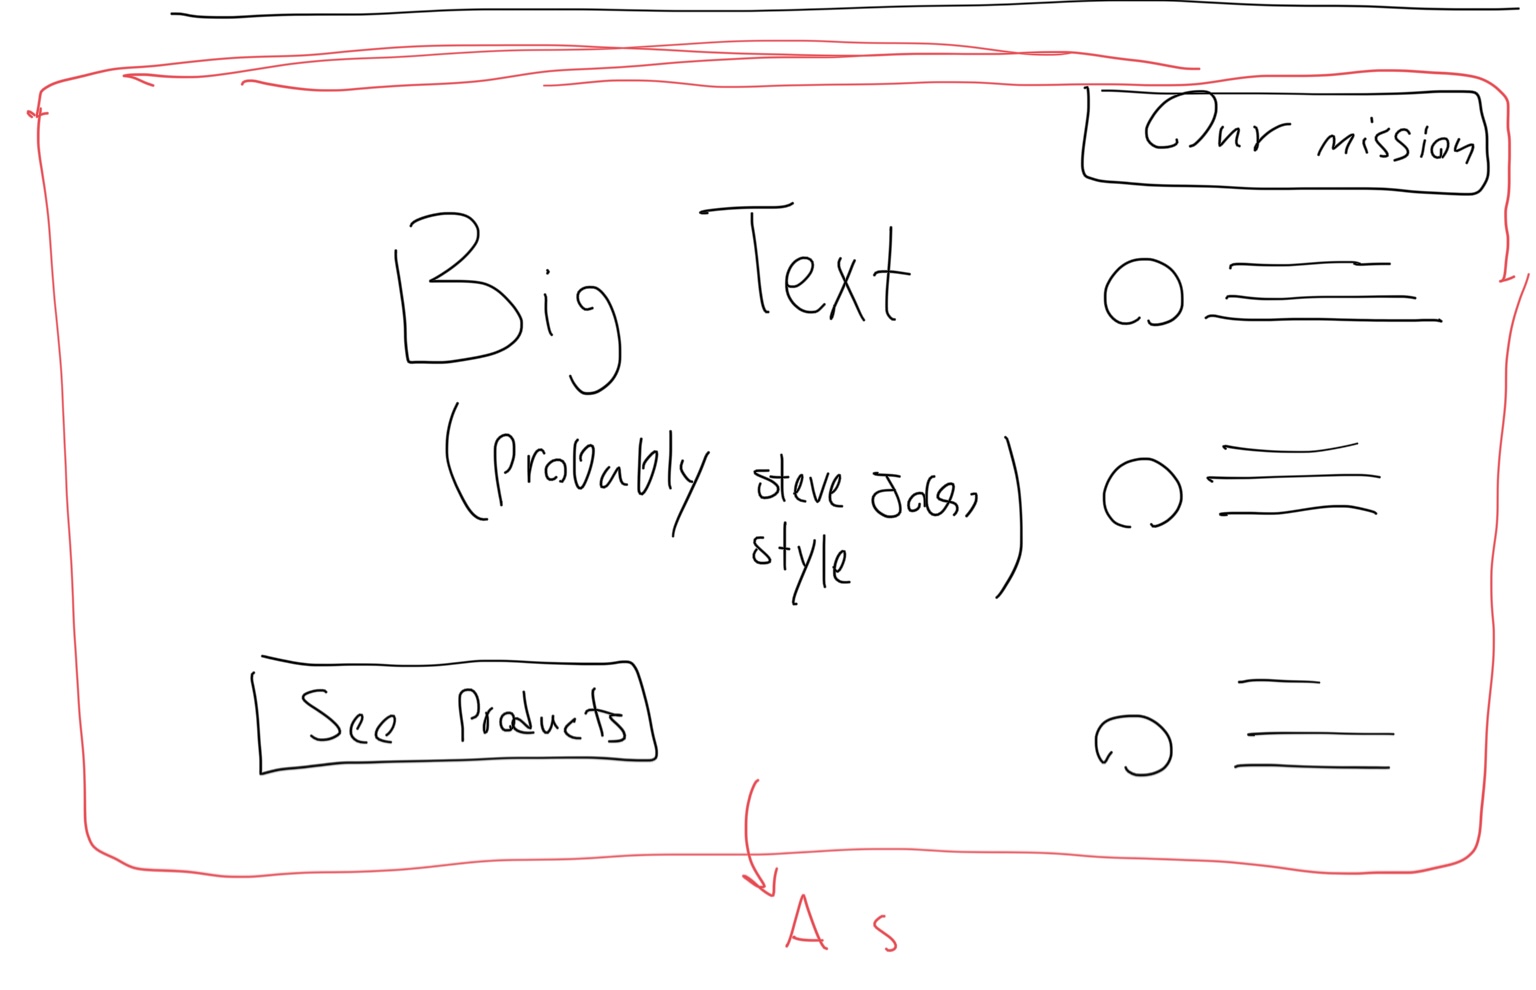 Our mission
Big Text
(Probably steve Jobs,
style)
See Products
A s